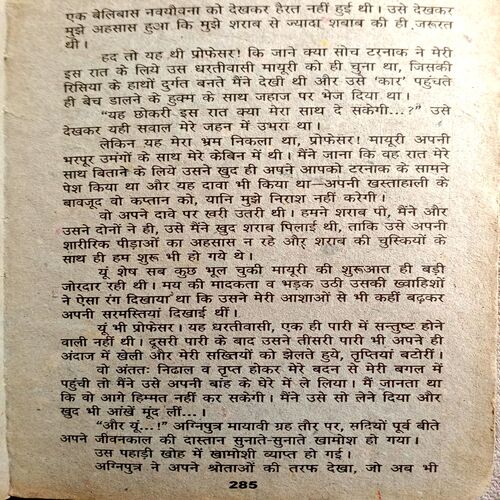 एक बेलिबास नवयौवना को देखकर हैरत नहीं हुई थी। उसे देखकर
मुझे अहसास हुआ कि मुझे शराब से ज्यादा शबाब की ही ज़रूरत
थी।
हद तो यह थी प्रोफेसर! कि जाने क्या सोच टरनाक ने मेरी
इस रात के लिये उस धरतीवासी मायूरी को ही चुना था, जिसकी
रिसिया के हाथों दुर्गत बनते मैंने देखी थी और उसे 'कार' पहुंचते
ही बेच डालने के हुक्म के साथ जहाज पर भेज दिया था।
"यह छोकरी इस रात क्या मेरा साथ दे सकेगी...?" उसे
देखकर यही सवाल मेरे जहन में उभरा था।
लेकिन यह मेरा भ्रम निकला था, प्रोफेसर! मायूरी अपनी
भरपूर उमंगों के साथ मेरे केबिन में थी। मैंने जाना कि वह रात मेरे
साथ बिताने के लिये उसने खुद ही अपने आपको टरनाक के सामने
पेश किया था और यह दावा भी किया था—अपनी खस्ताहाली के
बावजूद वो कप्तान को, यानि मुझे निराश नहीं करेगी।
वो अपने दावे पर खरी उतरी थी। हमने शराब पी, मैंने और
उसने दोनों ने ही, उसे मैंने खुद शराब पिलाई थी, ताकि उसे अपनी
शारीरिक पीड़ाओं का अहसास न रहे और शराब की चुस्कियों के
साथ ही हम शुरू भी हो गये थे।
यूं शेष सब कुछ भूल चुकी मायूरी की शुरूआत ही बड़ी
जोरदार रही थी। मय की मादकता व भड़क उठी उसकी ख्वाहिशों
ने ऐसा रंग दिखाया था कि उसने मेरी आशाओं से भी कहीं बढ़कर
अपनी सरमस्तियां दिखाई थीं।
यूं भी प्रोफेसर। यह धरतीवासी, एक ही पारी में सन्तुष्ट होने
वाली नहीं थी। दूसरी पारी के बाद उसने तीसरी पारी भी अपने ही
अंदाज में खेली और मेरी सख्तियों को झेलते हुये, तृप्तियां बटोरीं।
वो अंततः निढाल व तृप्त होकर मेरे बदन से मेरी बगल में
पहुंची तो मैंने उसे अपनी बांह के घेरे में ले लिया। मैं जानता था
कि वो आगे हिम्मत नहीं कर सकेगी। मैंने उसे सो लेने दिया और
खुद भी आंखें मूंद लीं...।
"और यूं...!" अग्निपुत्र मायावी ग्रह तौर पर, सदियों पूर्व बीते
अपने जीवनकाल की दास्तान सुनाते-सुनाते खामोश हो गया।
उस पहाड़ी खोह में खामोशी व्याप्त हो गई।
अग्निपुत्र ने अपने श्रोताओं की तरफ देखा, जो अब भी
285